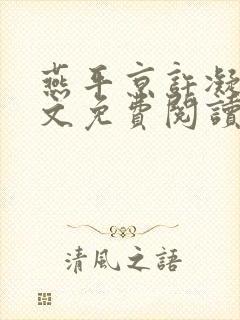 燕平京許凝
文免費閱讀
清風之語